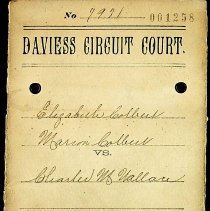 No 7921 001258
DAVIESS CIRCUIT COURT.
Elizabeth Colbert
Marion Colbert
VS.
Charles W. Wallace